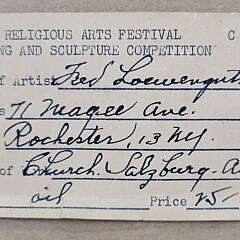 RELIGIOUS ARTS FESTIVAL C
NG AND SCULPTURE COMPETITION
of Artist Fred Loewenguth
s 71 Magee Ave.
Rochester, 13 N.Y.
of Church. Salzburg. A
oil Price 25.-